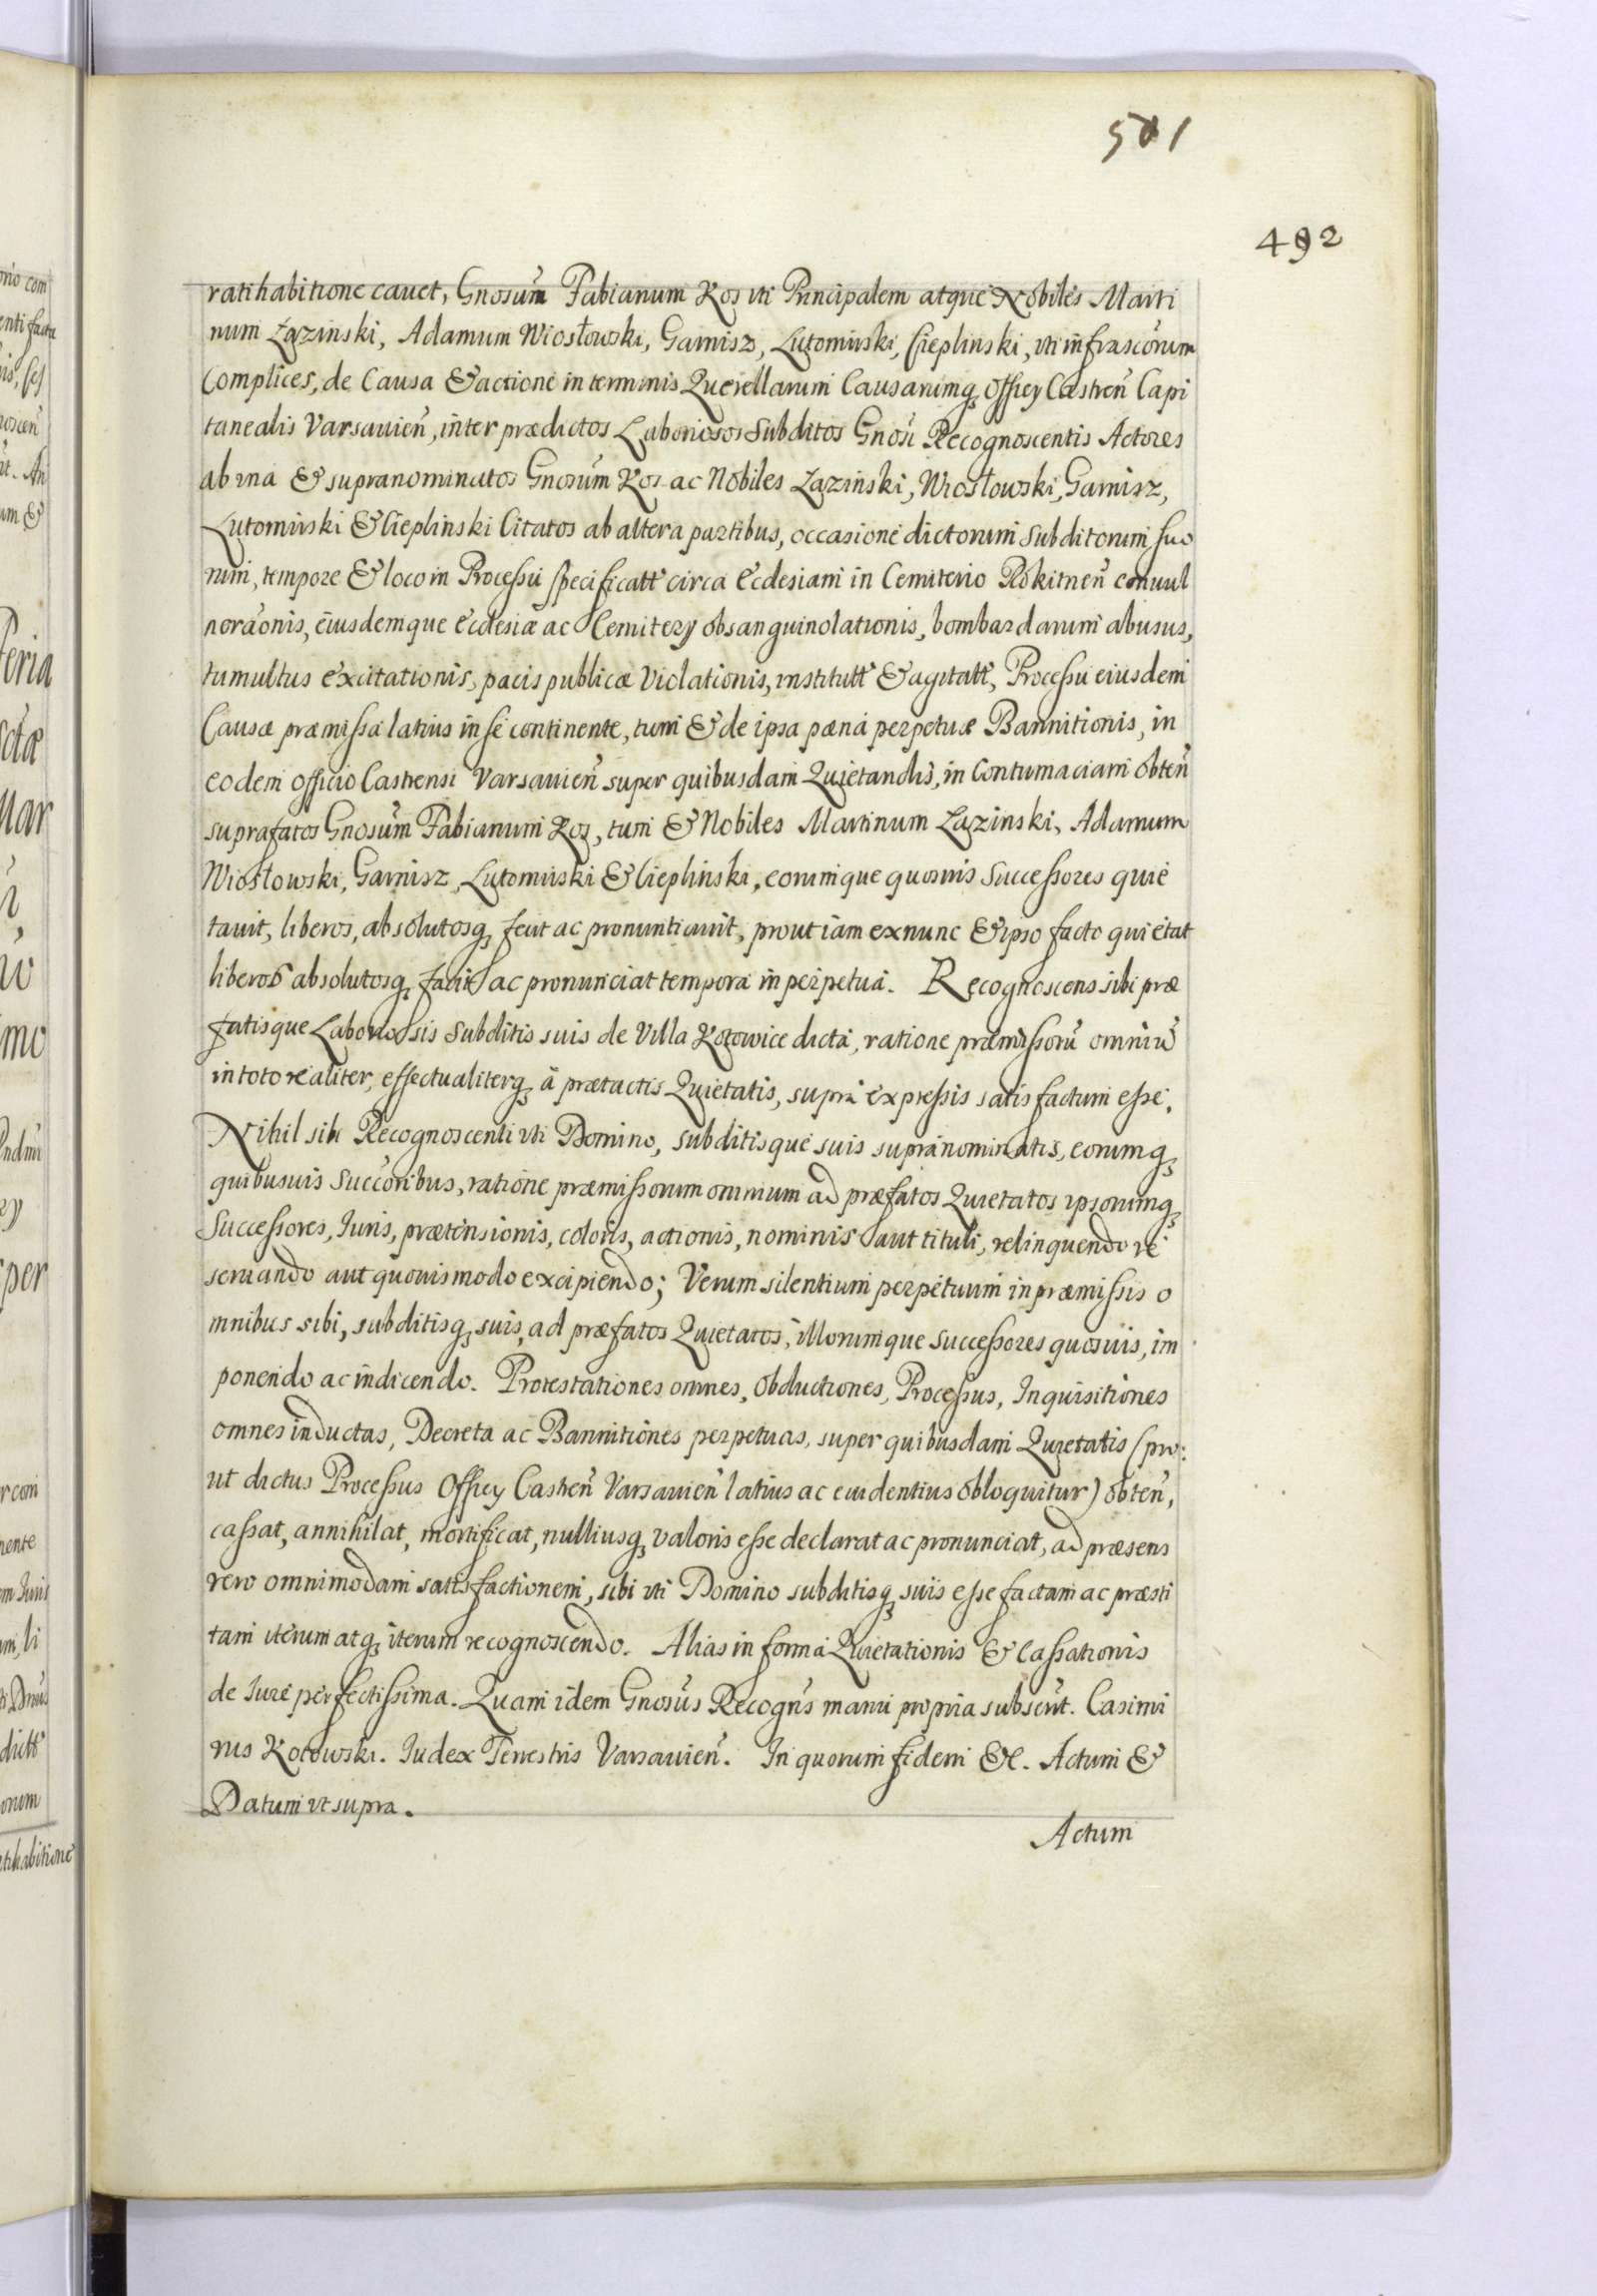 501
492
ratihabitione cauet, Gnosũm Fabianum Kos vti Principalem atque Nobiles Marti
num Łazinski, Adamum Wiosłowski, Garnisz, Lutomirski, Cieplinski, vti infrascõrum
Complices, de Causa & actione in terminis Querellarum Causarumq̨ Officy Castreñ Capi
tanealis Varsauieñ, inter prædictos Laboriosos Subditos Gnosi Recognoscentis Actores
ab vna & supranominatos Gnosũm Kos ac Nobiles Łazinski, Wiosłowski, Garnisz,
Lutomirski & Cieplinski Citatos ab altera partibus, occasione dictorum subditorum suo
rum, tempore & loco in Processu specificatt circa Ecclesiam in Cemiterio Rokitneñ conuul
neraõnis, eiusdemque Ecclesiæ ac Cemitery obsanguinolationis, bombardarum abusus,
tumultus excitationis, pacis publicæ violationis, institutt & agitatt, Processu eiusdem
Causæ præmissa latius in se continente, tum & de ipsa pæna perpetuæ Bannitionis, in
eodem officio Castrensi Varsauieñ super quibusdam Quietandis, in Contumaciam obteñ
suprafatos Gnosũm Fabianum Kos, tum & Nobiles Martinum Łazinski, Adamum
Wiosłowski, Garnisz, Lutomirski & Cieplinski, eorumque quosuis Successores quie
tauit, liberos, absolutosq̨ fecit ac pronuntiauit, prout iam exnunc & ipso facto quietat
liberos absolutosq̨ facit ac pronunciat tempora in perpetua. Recognoscens sibi præ
fatisque Laboriosis Subditis suis de Villa Kotowice dicta, ratione præmissorũ omniũ
in toto realiter, effectualiterq̨ à prætactis Quietatis, supra expressis satisfactum esse.
Nihil sibi Recognoscenti vti Domino, subditisque suis supranominatis, eorumq̨
quibusuis Succõribus, ratione præmissorum omnium ad præfatos Quietatos ipsorumq̨
Successores, Iuris, prætensionis, coloris, actionis, nominis aut tituli, relinquendo re
seruando aut quouismodo excipiendo; Verum silentium perpetuum in præmissis o
mnibus sibi, subditisq̨ suis, ad præfatos Quietatos, illorumque successores quosuis, im
ponendo ac indicendo. Protestationes omnes, Obductiones, Processus, Inquisitiones
omnes inductas, Decreta ac Bannitiones perpetuas, super quibusdam Quietatis (pro:
ut dictus Processus Officy Castreñ Varsauieñ latius ac euidentius obloquitur) obteñ,
cassat, annihilat, mortificat, nulliusq̨ valoris esse declarat ac pronunciat, ad præsens
vero omnimodam satisfactionem, sibi vti Domino subditisq̨ suis esse factam ac præsti
tam iterum atq̨ iterum recognoscendo. Alias in forma Quietationis & Cassationis
de Iure perfectissima. Quam idem Gnosus Recogñs manu propria subscrit. Casimi
rus Kotowski. Iudex Terrestris Varsauieñ. In quorum fidem &c. Actum &
Datum vt supra.
Actum